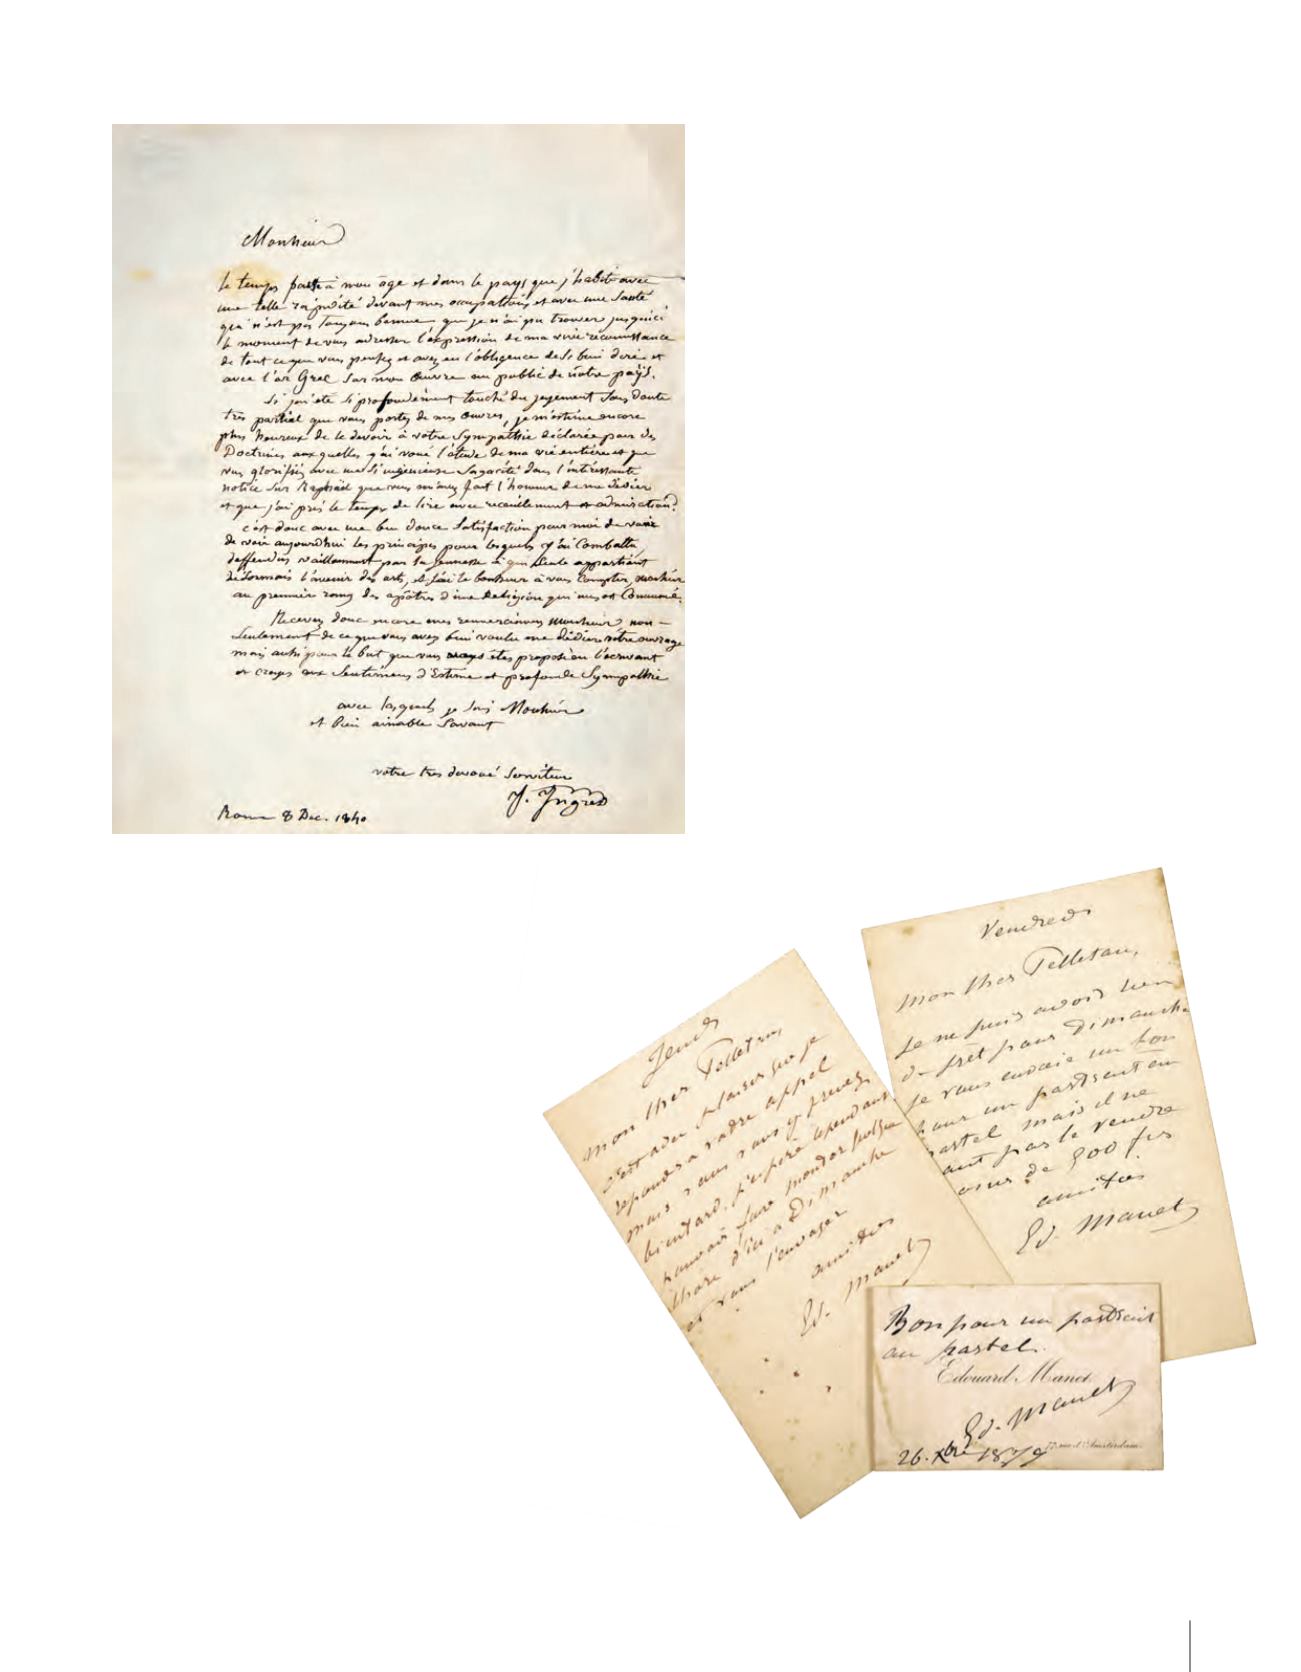 Monsieur
le temps passe à mon âge et dans le pays que j'habite avec
une telle rapidité devant mes occupations et avec une santé
qui n'est pas toujours bonne que je n'ai pu trouver jusqu'ici
le moment de vous adresser l'expression de ma vive reconnaissance
de tout ce que vous pensez et avez eu l'obligeance de si bien dire et
avec l'ar Grec sur mon Œuvre au public de notre pays.
Si j'ai été si profondément touché du jugement sans doute
très partial que vous portez de mes Œuvres, je m'estime encore
plus heureux de le devoir à votre Sympathie déclarée pour des
Doctrines auxquelles j'ai voué l'étude de ma vie entière et que
vous glorifiez avec une si ingénieuse Sagacité dans l'intéressante
notice sur Raphaël que vous m'avez fait l'honneur de me dédier
et que j'ai pris le temps de lire avec recueillement et admiration.
c'est donc avec une bien douce Satisfaction pour moi de
de voir aujourd'hui les principes pour lesquels j'ai Combattu
deffendus vaillamment par la jeunesse à qui seule appartient
désormais l'avenir des arts, et j'ai le bonheur à vous Compter, monsieur
au premier rang des apôtres d'une Religion qui nous est Commune.
Recevez donc encore mes remerciemens monsieur non-
Seulement de ce que vous avez bien voulu me dédier votre ouvrage
mais aussi pour le but que vous vous êtes proposé en l'écrivant
et croyez aux Sentimens d'Estime et profonde Sympathie
avec lesquels je suis Monsieur
et Bien aimable Savant
votre tres devoué Serviteur
J. Ingres
Rome 8 Dec. 1840
Vendredi
mon cher Pelletan,
je ne puis avoir rien
de prêt pour dimanche
je vous envoie un bon
pour un portrait au
pastel mais il ne
faut pas le vendre
moins de 500 frs
amitiés
Ed. Manet
Jeudi
mon cher Pelletan,
c'est avec plaisir que je
repondrai à votre appel
mais vous vous y prenez
bien tard. j'espère cependant
pouvoir faire quelque
chose d'ici à Dimanche
et vous l'envoyer
amitiés
Ed. Manet
Bon pour un portrait
au pastel.
Edouard Manet
Ed. Manet
77, rue d'Amsterdam.
26. Xbre 1879